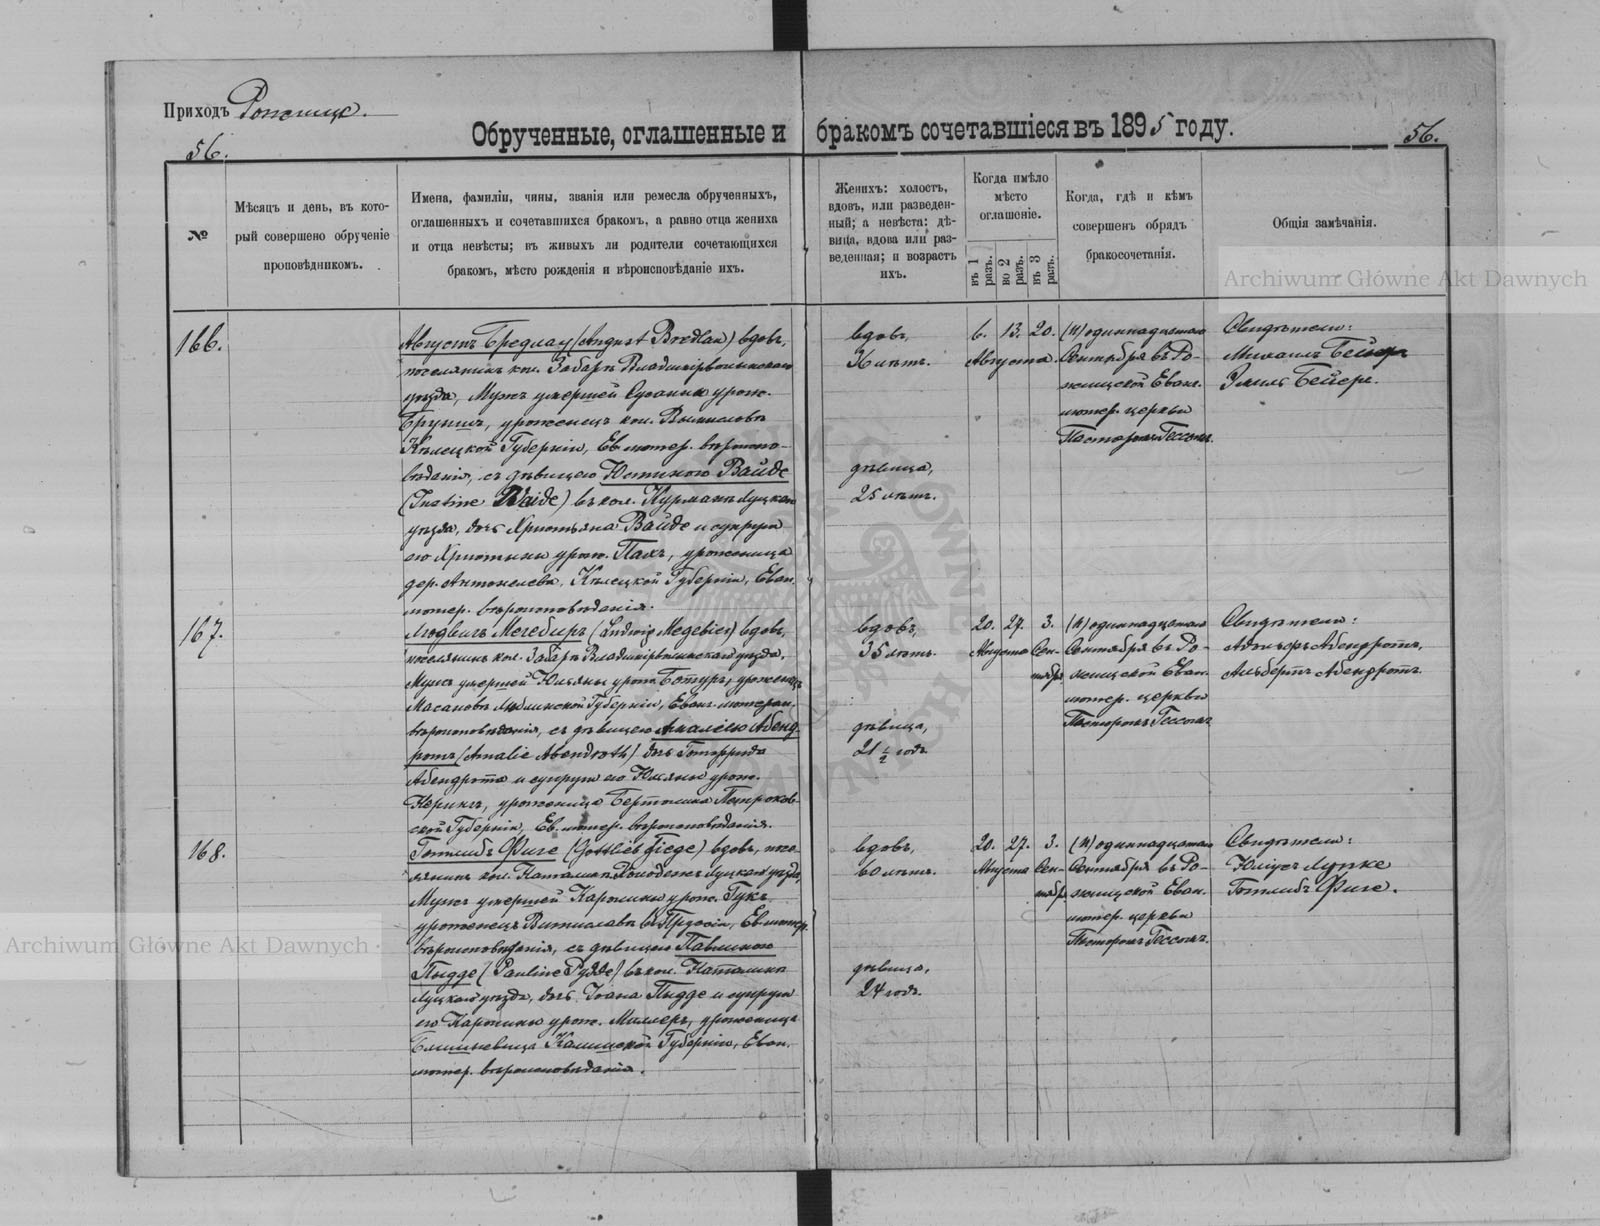 Приходъ Рожище.
Обрученные, оглашенные и бракомъ сочетавшіеся въ 1895 году.
56.
56.
№
Мѣсяцъ и день, въ кото-
рый совершено обрученіе
проповѣдникомъ.
Имена, фамиліи, чины, званія или ремесла обрученныхъ,
оглашенныхъ и сочетавшихся бракомъ, а равно отца жениха
и отца невѣсты; въ живыхъ ли родители сочетающихся
бракомъ, мѣсто рожденія и вѣроисповѣданіе ихъ.
Женихъ: холостъ,
вдовъ, или разведен-
ный; а невѣста: дѣ-
вица, вдова или раз-
веденная; и возрастъ
ихъ.
Когда имѣло
мѣсто
оглашеніе.
въ 1 разъ.
во 2 разъ.
въ 3 разъ.
Когда, гдѣ и кѣмъ
совершенъ обрядъ
бракосочетанія.
Общія замѣчанія.
Archiwum Główne Akt Dawnych
166.
Августъ Бредлау (August Bredlau) вдовъ,
поселянинъ кол. Забара Владимірволынскаго
уѣзда, Мужъ умершей Сузанны урож.
уроженецъ кол.
Кѣлецкой Губерніи, Ев. лютер. вѣроиспо-
вѣданія, съ дѣвицею Юстиною Вайде
(Justine Waide) въ кол. Луцкаго
уѣзда, дочь Христьяна Вайде и супруги
его Христины урож. уроженица
дер. Кѣлецкой Губерніи, Еван.
лютер. вѣроисповѣданія.
вдовъ,
36 лѣтъ.
дѣвица,
25 лѣтъ.
6. 13. 20.
Августа
(11) одиннадцатаго
Сентября въ Ро-
жищской Еванг.
лютер. церкви
Пасторомъ
Свидѣтели:
Михаилъ Бейеръ
Эмиль Бейеръ.
167.
Людвигъ Мегебиръ (Ludwig Megebier) вдовъ,
поселянинъ кол. Забара Владимірволынскаго уѣзда,
Мужъ умершей Юльяны урож. уроженецъ
Губерніи, Еванг. лютеран.
вѣроисповѣданія, съ дѣвицею Амаліею Абенд-
ротъ (Amalie Abendroth) дочь Готфрида
Абендрота и супруги его Юльяны урож.
уроженица Петроков-
ской Губерніи, Ев. лютер. вѣроисповѣданія.
вдовъ,
35 лѣтъ.
дѣвица,
21 ½ годъ
20. 27. 3.
Августа Сен-
тября
(11) одиннадцатаго
Сентября въ Ро-
жищской Еван.
лютер. церкви
Пасторомъ
Свидѣтели:
Абендротъ,
Альбертъ Абендротъ.
168.
Готлибъ Фиге (Gottlieb Fiege) вдовъ, посе-
лянинъ кол. Луцкаго уѣзда,
Мужъ умершей Каролины урож.
уроженецъ въ Пруссіи, Ев. лютер.
вѣроисповѣданія, съ дѣвицею Павлиною
Пудде (Pauline Pudde) въ кол.
Луцкаго уѣзда, дочь Іоана Пудде и супруги
его Каролины урож. Миллеръ, уроженица
Губерніи, Еван.
лютер. вѣроисповѣданія.
вдовъ,
60 лѣтъ.
дѣвица,
24 годъ.
20. 27. 3.
Августа Сен-
тября
(11) одиннадцатаго
Сентября въ Ро-
жищской Еван.
лютер. церкви
Пасторомъ
Свидѣтели:
Юліусъ Лупке
Готлибъ Фиге.
Archiwum Główne Akt Dawnych